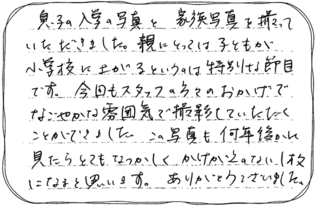 息子の入学の写真と 家族写真を撮って
いただきました。親にとっては子どもが
小学校に上がるというのは特別な節目
です。今回もスタッフの方々のおかげで
なごやかな雰囲気で撮影していただく
ことができました この写真も何年後かに
見たらとてもなつかしく かけがえのない1枚
になると思います。ありがとうございました。